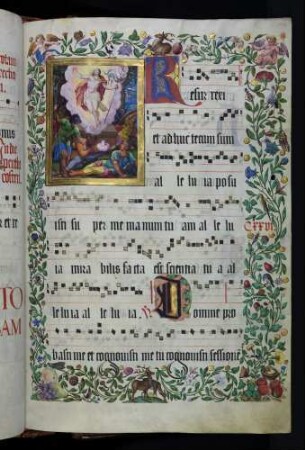 Resur rexi
et adhuc tecum sum
al le lu ia posu
isti su per me manum tu am al le lu
ia mira bilis facta est scientia tu a al
le lu ia al le lu ia. Domine pro
basti me et cognovisti me tu cognovisti sessionē
CXXVI